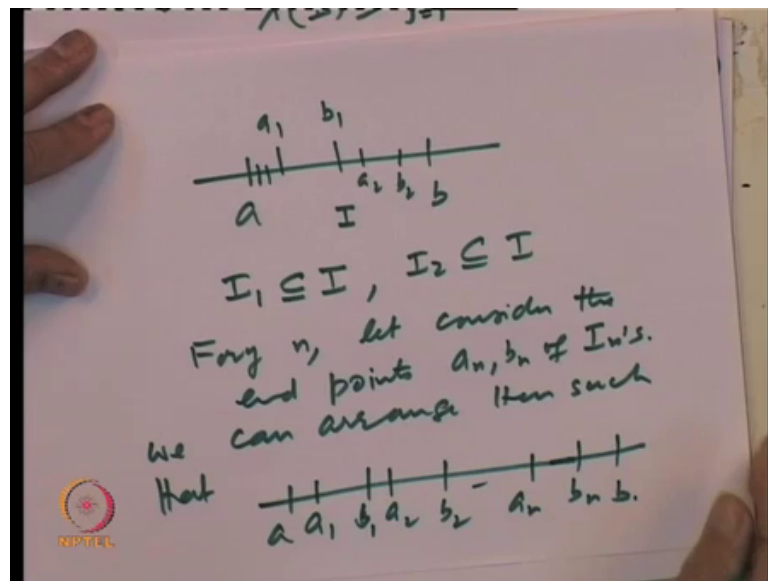 a₁ b₁
a I a₂ b₂ b
I₁ ⊆ I, I₂ ⊆ I
n, let consider the
end points aₙ, bₙ of Iₙ's.
we can arrange them such
that
a a₁ b₁ a₂ b₂ - aₙ bₙ b.
NPTEL